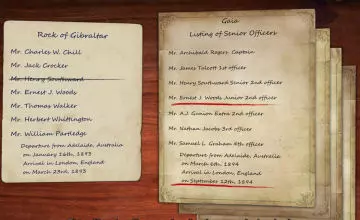 Rock of Gibraltar
Mr. Charles W. Chill
Mr. Jack Crocker
Mr. Henry Southward
Mr. Ernest J. Woods
Mr. Thomas Walker
Mr. Herbert Whittington
Mr. William Partledge
Departure from Adelaide, Australia
on January 16th, 1893
Arrival in London, England
on March 23rd, 1893
Gaia
Listing of Senior Officers
Mr. Archibald Ragers Captain
Mr. James Talcott 1st officer
Mr. Henry Southward Senior 2nd officer
Mr. Ernest J. Woods Junior 2nd officer
Mr. A.J. Gunion Extra 2nd officer
Mr. Nathan Jacobs 3rd officer
Mr. Samuel L. Graham 4th officer
Departure from Adelaide, Australia
on March 6th, 1894
Arrival in London, England
on September 12th, 1894